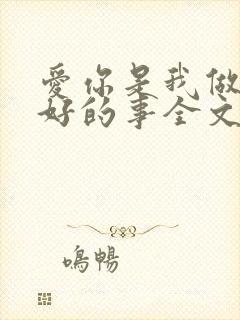 爱你是我做
好的事全文
鳴暢